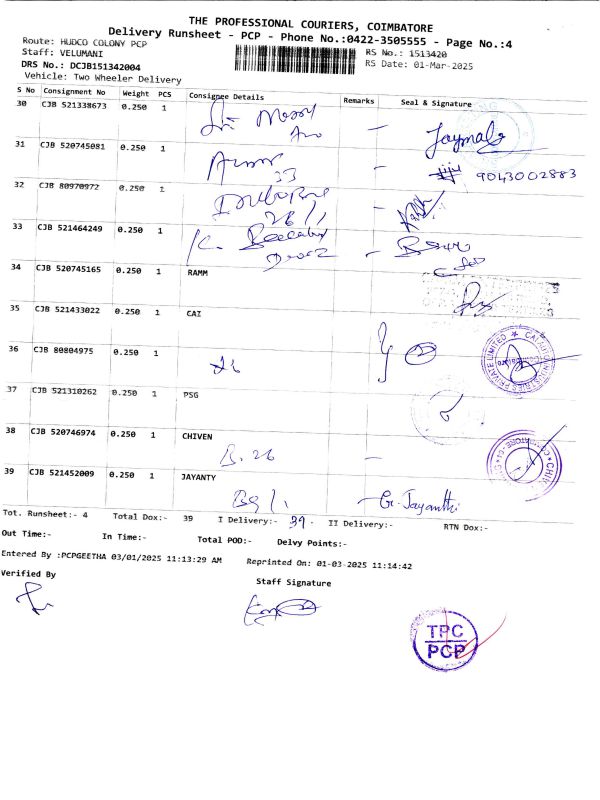 THE PROFESSIONAL COURIERS, COIMBATORE
Delivery Runsheet - PCP - Phone No.:0422-3505555 - Page No.:4
Route: HUDCO COLONY PCP
RS No.: 1513420
Staff: VELUMANI
RS Date: 01-Mar-2025
DRS No.: DCJB151342004
Vehicle: Two Wheeler Delivery
S No Consignment No Weight PCS Consignee Details Remarks Seal & Signature
30 CJB 521338673 0.250 1
31 CJB 520745081 0.250 1 9043002883
32 CJB 80970972 0.250 1
33 CJB 521464249 0.250 1
34 CJB 520745165 0.250 1 RAMM
35 CJB 521433022 0.250 1 CAI
36 CJB 80804975 0.250 1
37 CJB 521310262 0.250 1 PSG
38 CJB 520746974 0.250 1 CHIVEN
B. 26
39 CJB 521452009 0.250 1 JAYANTY
G. Jayanthi
Tot. Runsheet:- 4 Total Dox:- 39 I Delivery:- 39. II Delivery:- RTN Dox:-
Out Time:- In Time:- Total POD:- Delvy Points:-
Entered By :PCPGEETHA 03/01/2025 11:13:29 AM Reprinted On: 01-03-2025 11:14:42
Verified By
Staff Signature
TPC
PCP